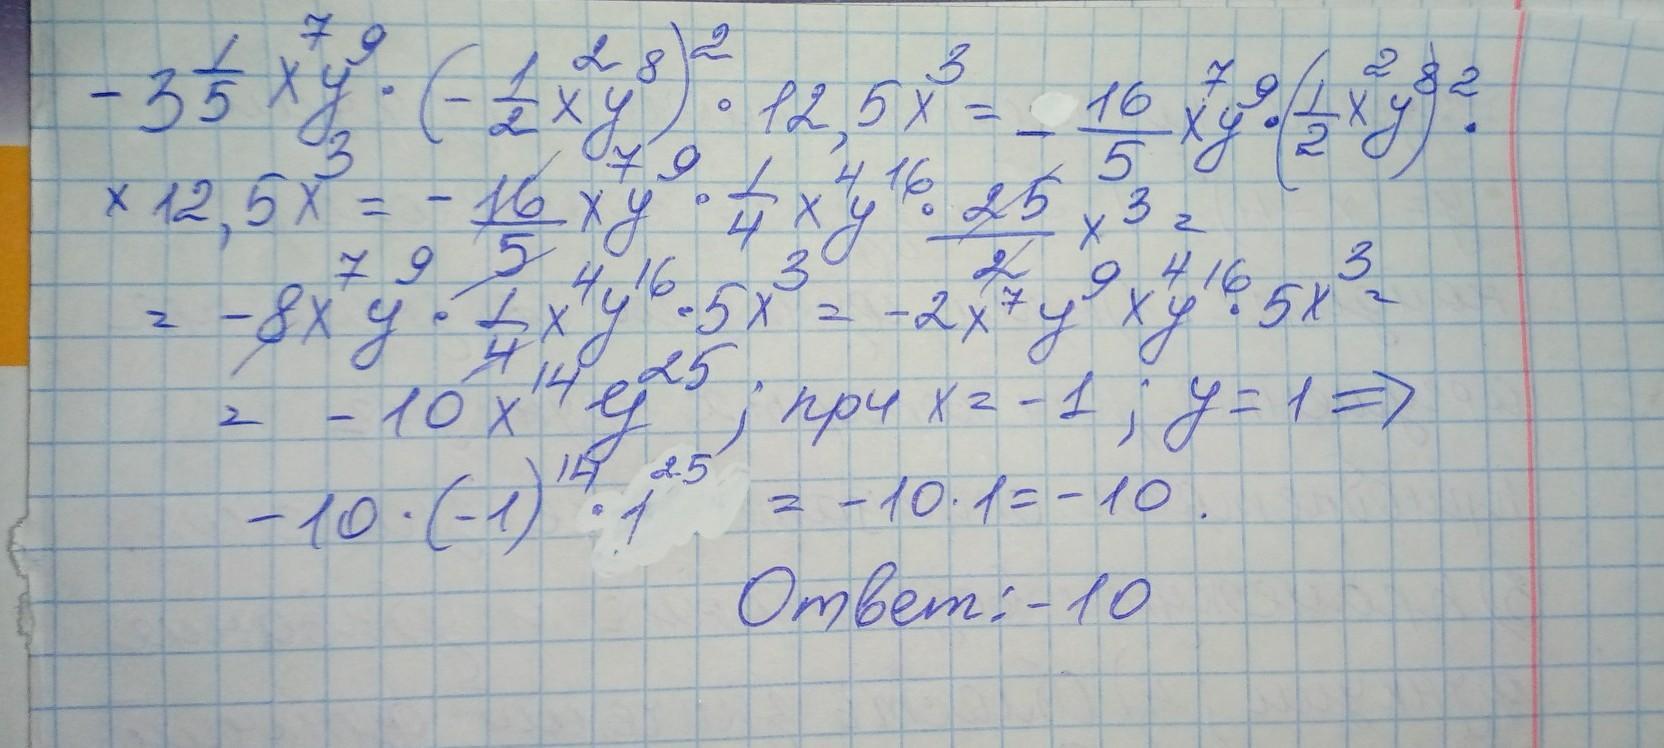 -3 1/5 x⁷y⁹ · (-1/2 x²y⁸)² · 12,5x³ = - 16/5 x⁷y⁹ · (1/2 x²y⁸)² ·
× 12,5x³ = - 16/5 x⁷y⁹ · 1/4 x⁴y¹⁶ · 25/2 x³ =
= -8x⁷y⁹ · 1/4 x⁴y¹⁶ · 5x³ = -2x⁷y⁹x⁴y¹⁶ · 5x³ =
= -10x¹⁴y²⁵ ; при x = -1 ; y = 1 =>
-10 · (-1)¹⁴ · 1²⁵ = -10 · 1 = -10 .
Ответ: -10